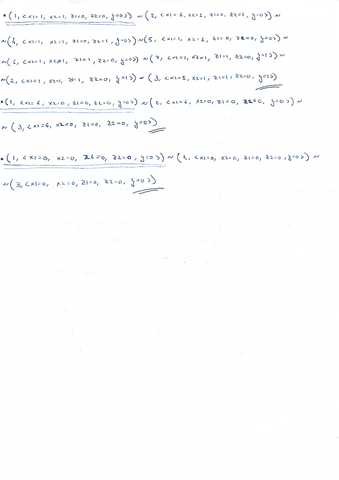 • (1, <x1=1, x2=1, z1=0, z2=0, y=0>) ~ (2, <x1=1, x2=1, z1=0, z2=1, y=0>) ~
~ (4, <x1=1, x2=1, z1=0, z2=1, y=0>) ~ (5, <x1=1, x2=1, z1=0, z2=0, y=0>) ~
~ (6, <x1=1, x2=1, z1=1, z2=0, y=0>) ~ (7, <x1=1, x2=1, z1=1, z2=0, y=1>) ~
~ (2, <x1=1, x2=1, z1=1, z2=0, y=1>) ~ (3, <x1=1, x2=1, z1=1, z2=0, y=1>)
• (1, <x1=6, x2=0, z1=0, z2=0, y=0>) ~ (2, <x1=6, x2=0, z1=0, z2=0, y=0>) ~
~ (3, <x1=6, x2=0, z1=0, z2=0, y=0>)
• (1, <x1=0, x2=0, z1=0, z2=0, y=0>) ~ (2, <x1=0, x2=0, z1=0, z2=0, y=0>) ~
~ (3, <x1=0, x2=0, z1=0, z2=0, y=0>)